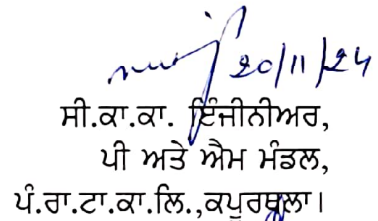 20/11/24
ਸੀ.ਕਾ.ਕਾ. ਇੰਜੀਨੀਅਰ,
ਪੀ ਅਤੇ ਐਮ ਮੰਡਲ,
ਪੰ.ਰਾ.ਟਾ.ਕਾ.ਲਿ.,ਕਪੂਰਥਲਾ।